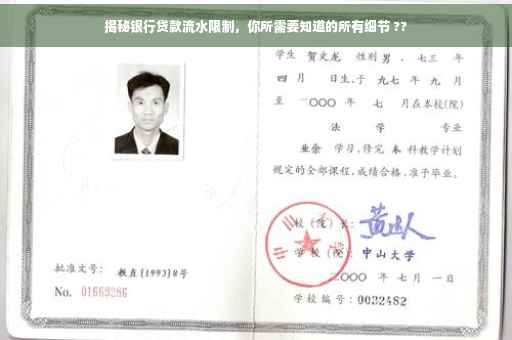 揭秘银行贷款流水限制，你所需要知道的所有细节 ??
学生 贺文龙 性别 男，七三 年
四 月 日生,于 九七 年 九 月
至 二〇〇〇 年 七 月在本校(院)
法 学 专业
业余 学习,修完 本 科教学计划
规定的全部课程,成绩合格,准予毕业。
校(院)长:
学校(院) 中山大学
二〇〇〇 年 七 月 一 日
学校编号: 0032482
批准文号: 教直[1993]8号
No. 01669286